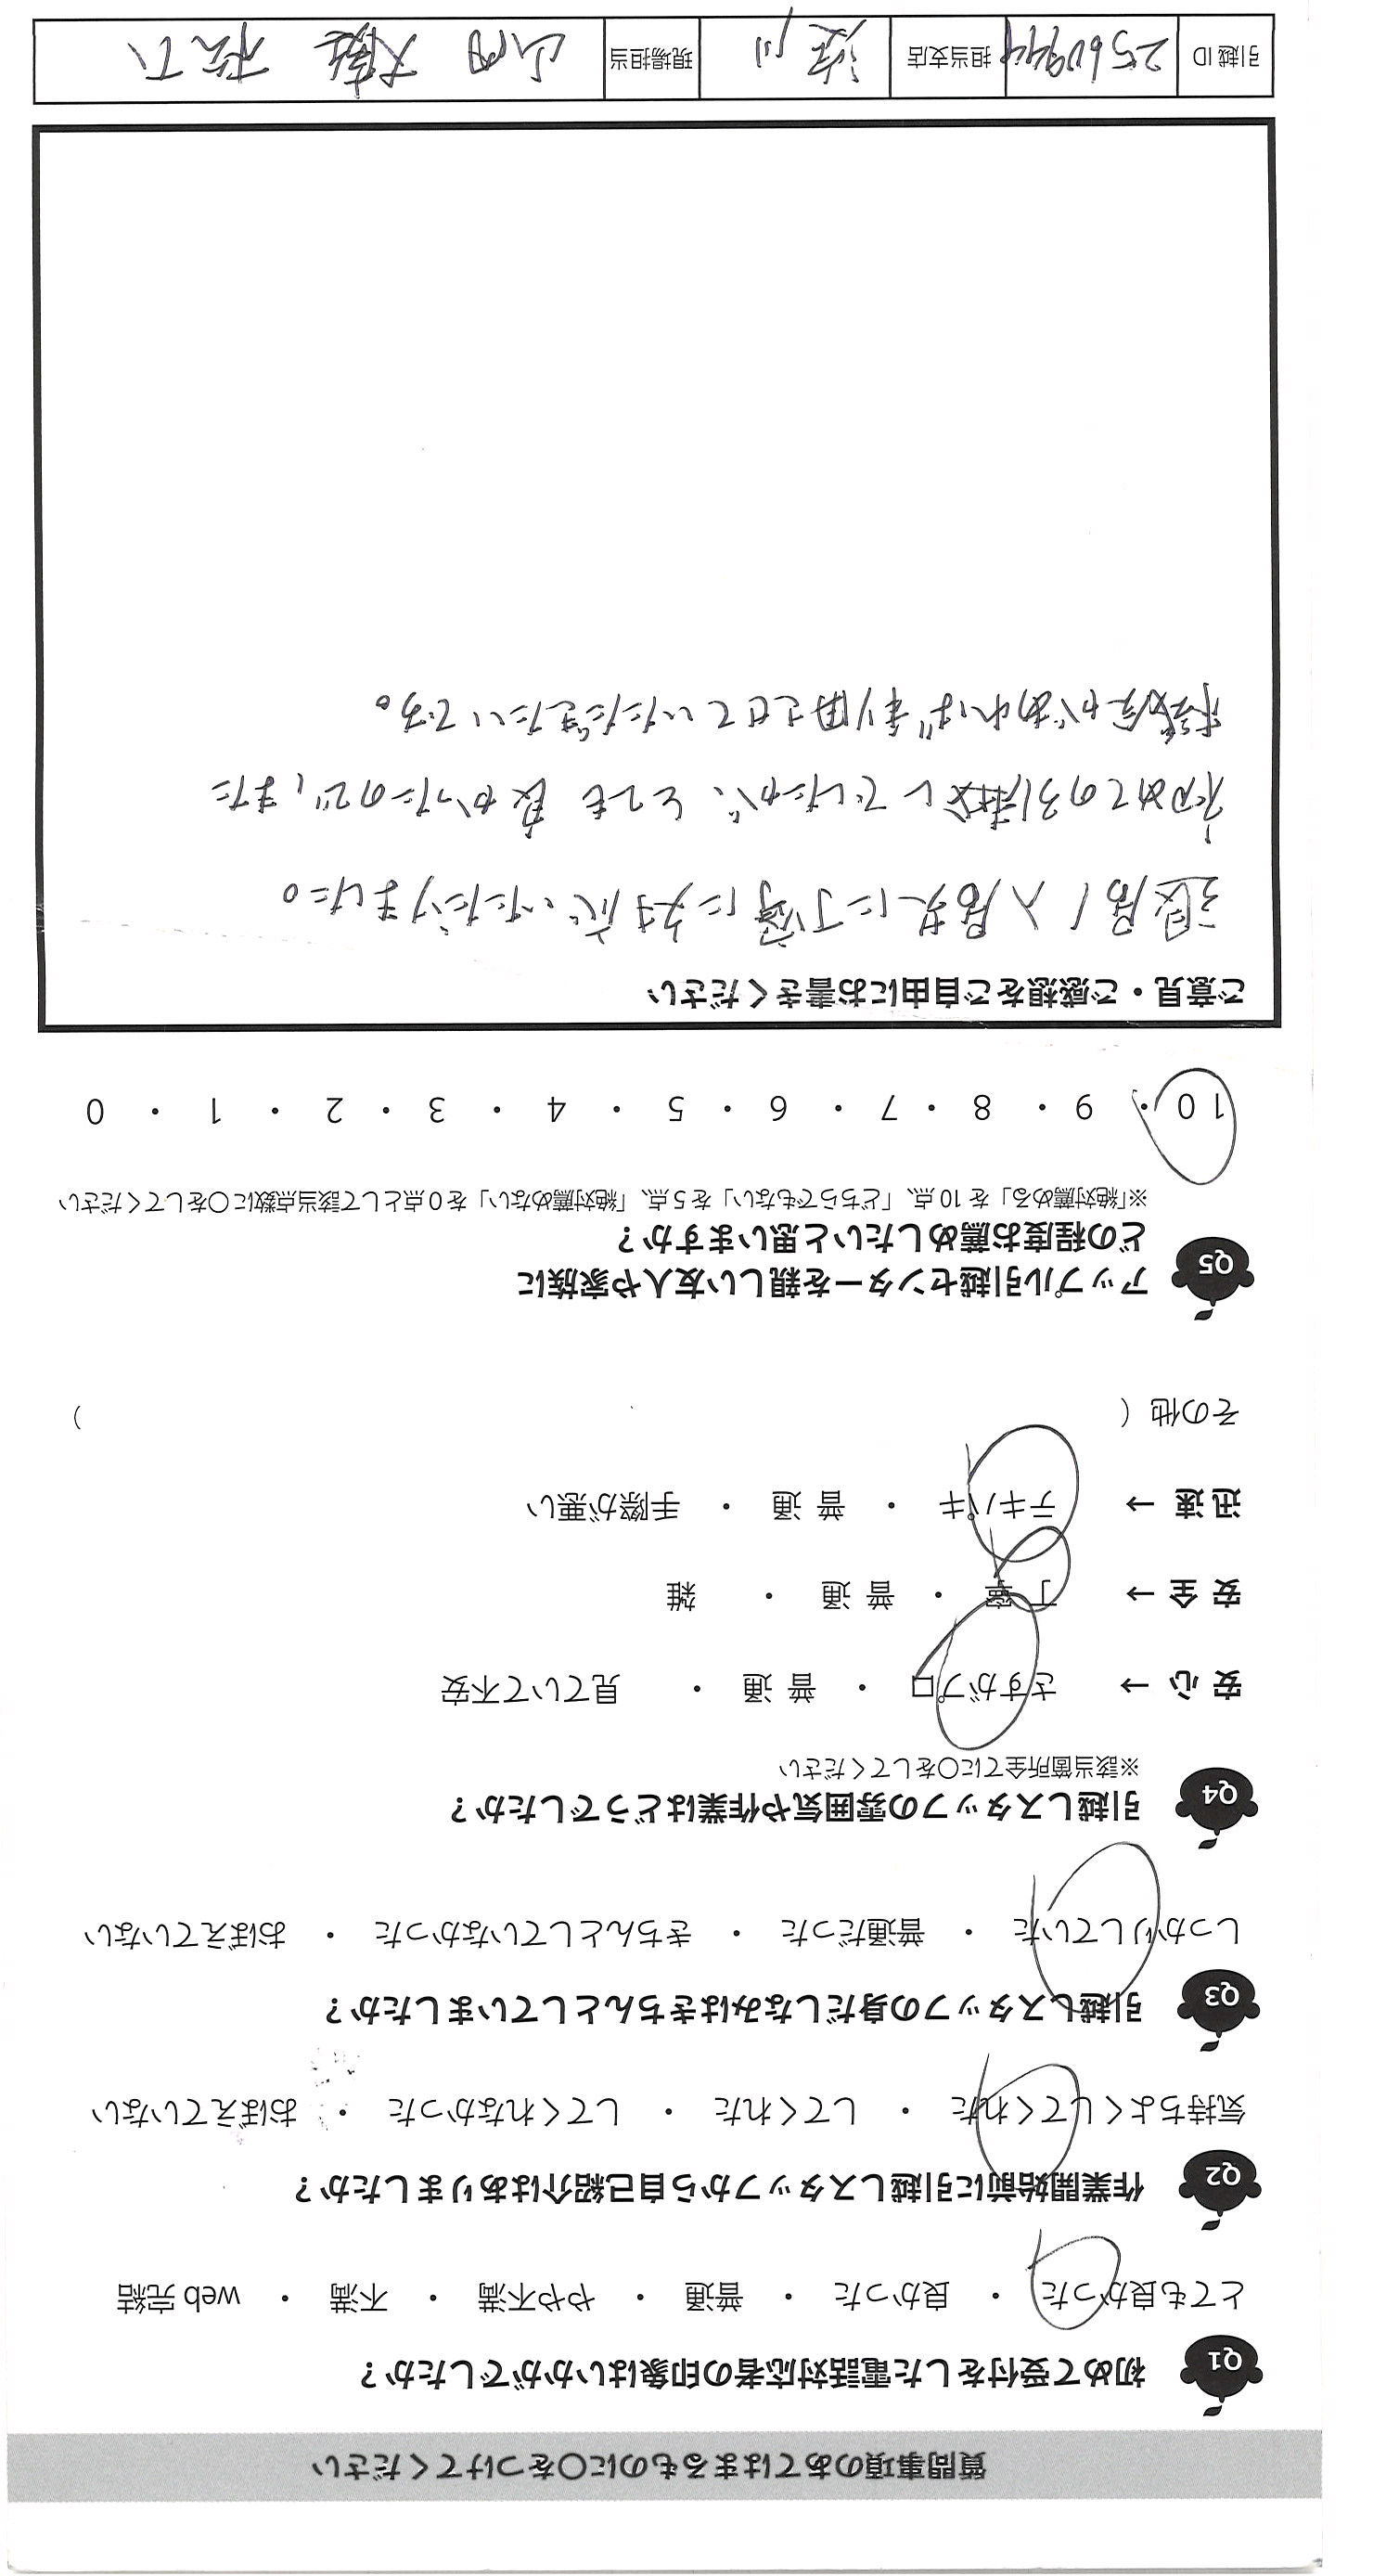 質問事項のあてはまるものに○をつけてください
Q1 初めて受付をした電話対応者の印象はいかがでしたか?
とても良かった ・ 良かった ・ 普通 ・ やや不満 ・ 不満 ・ web完結
Q2 作業開始前に引越しスタッフから自己紹介はありましたか?
気持ちよくしてくれた ・ してくれた ・ してくれなかった ・ おぼえていない
Q3 引越しスタッフの身だしなみはきちんとしていましたか?
しっかりしていた ・ 普通だった ・ きちんとしていなかった ・ おぼえていない
Q4 引越しスタッフの雰囲気や作業はどうでしたか?
※該当箇所全てに○をしてください
安心 → さすがプロ ・ 普通 ・ 見ていて不安
安全 → 丁寧 ・ 普通 ・ 雑
迅速 → テキパキ ・ 普通 ・ 手際が悪い
その他 ( )
Q5 アップル引越センターを親しい友人や家族に
どの程度お薦めしたいと思いますか?
※「絶対薦める」を10点、「どちらでもない」を5点、「絶対薦めない」を0点として該当点数に○をしてください
10 ・ 9 ・ 8 ・ 7 ・ 6 ・ 5 ・ 4 ・ 3 ・ 2 ・ 1 ・ 0
ご意見・ご感想をご自由にお書きください
退居/入居共に丁寧に対応いただけました。
初めての引越しでしたが、とても良かったので、また
機会があれば利用させていただきたいです。
引越ID 2560944 担当支店 現場担当 山内 大 松下